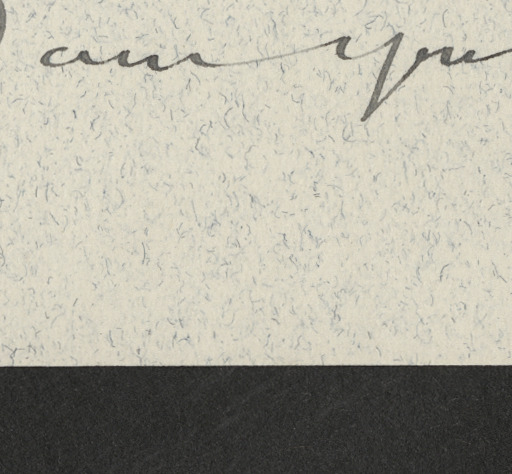 am you